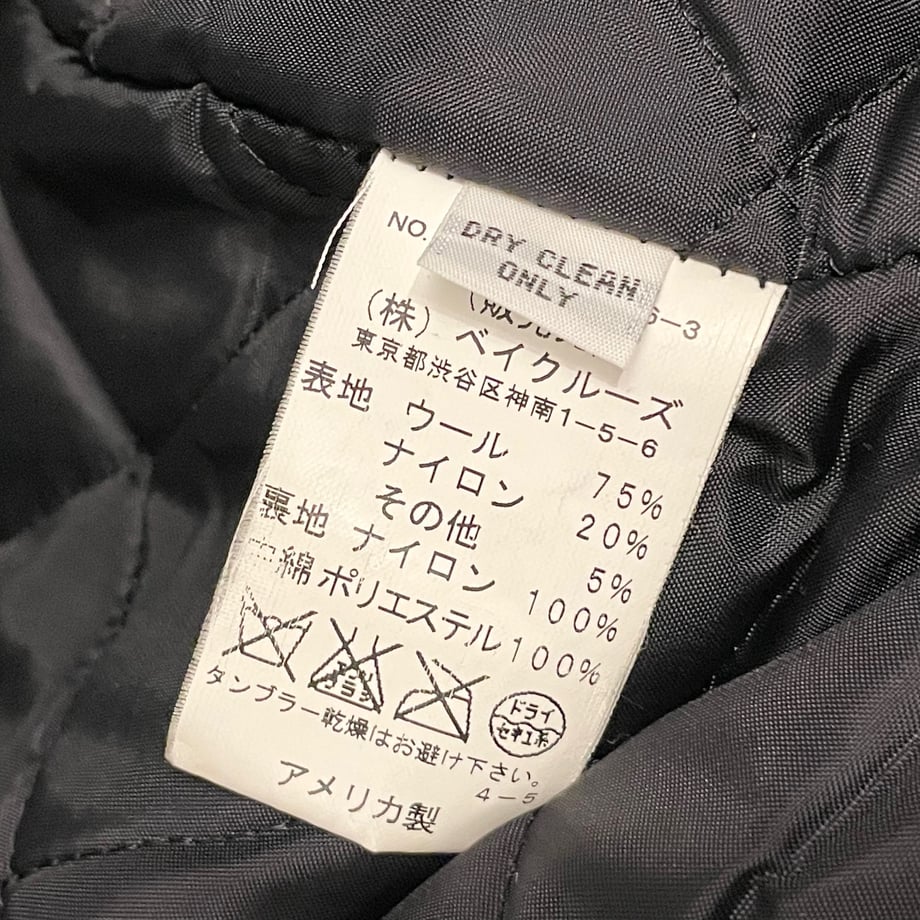 NO.
DRY CLEAN
ONLY
6-3
(株)ベイクルーズ
東京都渋谷区神南1-5-6
表地 ウール 75%
ナイロン 20%
その他 5%
裏地 ナイロン 100%
綿 ポリエステル 100%
エンソ
サラシ
ドライ
セキユ系
タンブラー乾燥はお避け下さい。
4-5
アメリカ製